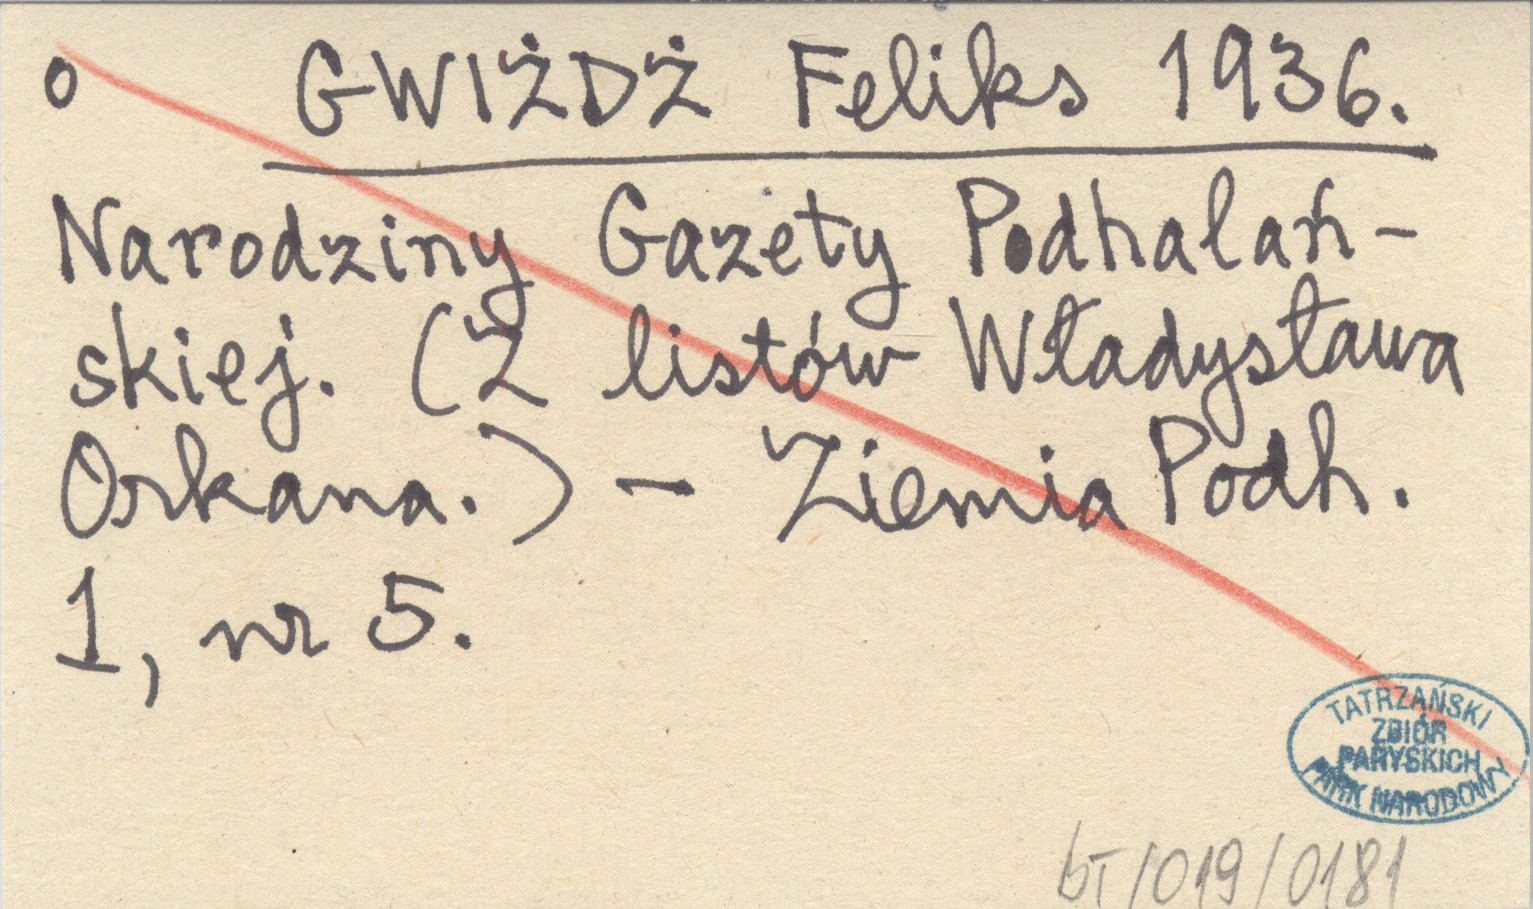 o GWIŻDŻ Feliks 1936.
Narodziny Gazety Podhalań-
skiej. (Z listów Władysława
Orkana.) - Ziemia Podh.
1, nr 5.
TATRZAŃSKI
ZBIÓR
PARYSKICH
PARK NARODOWY
bT/019/0181